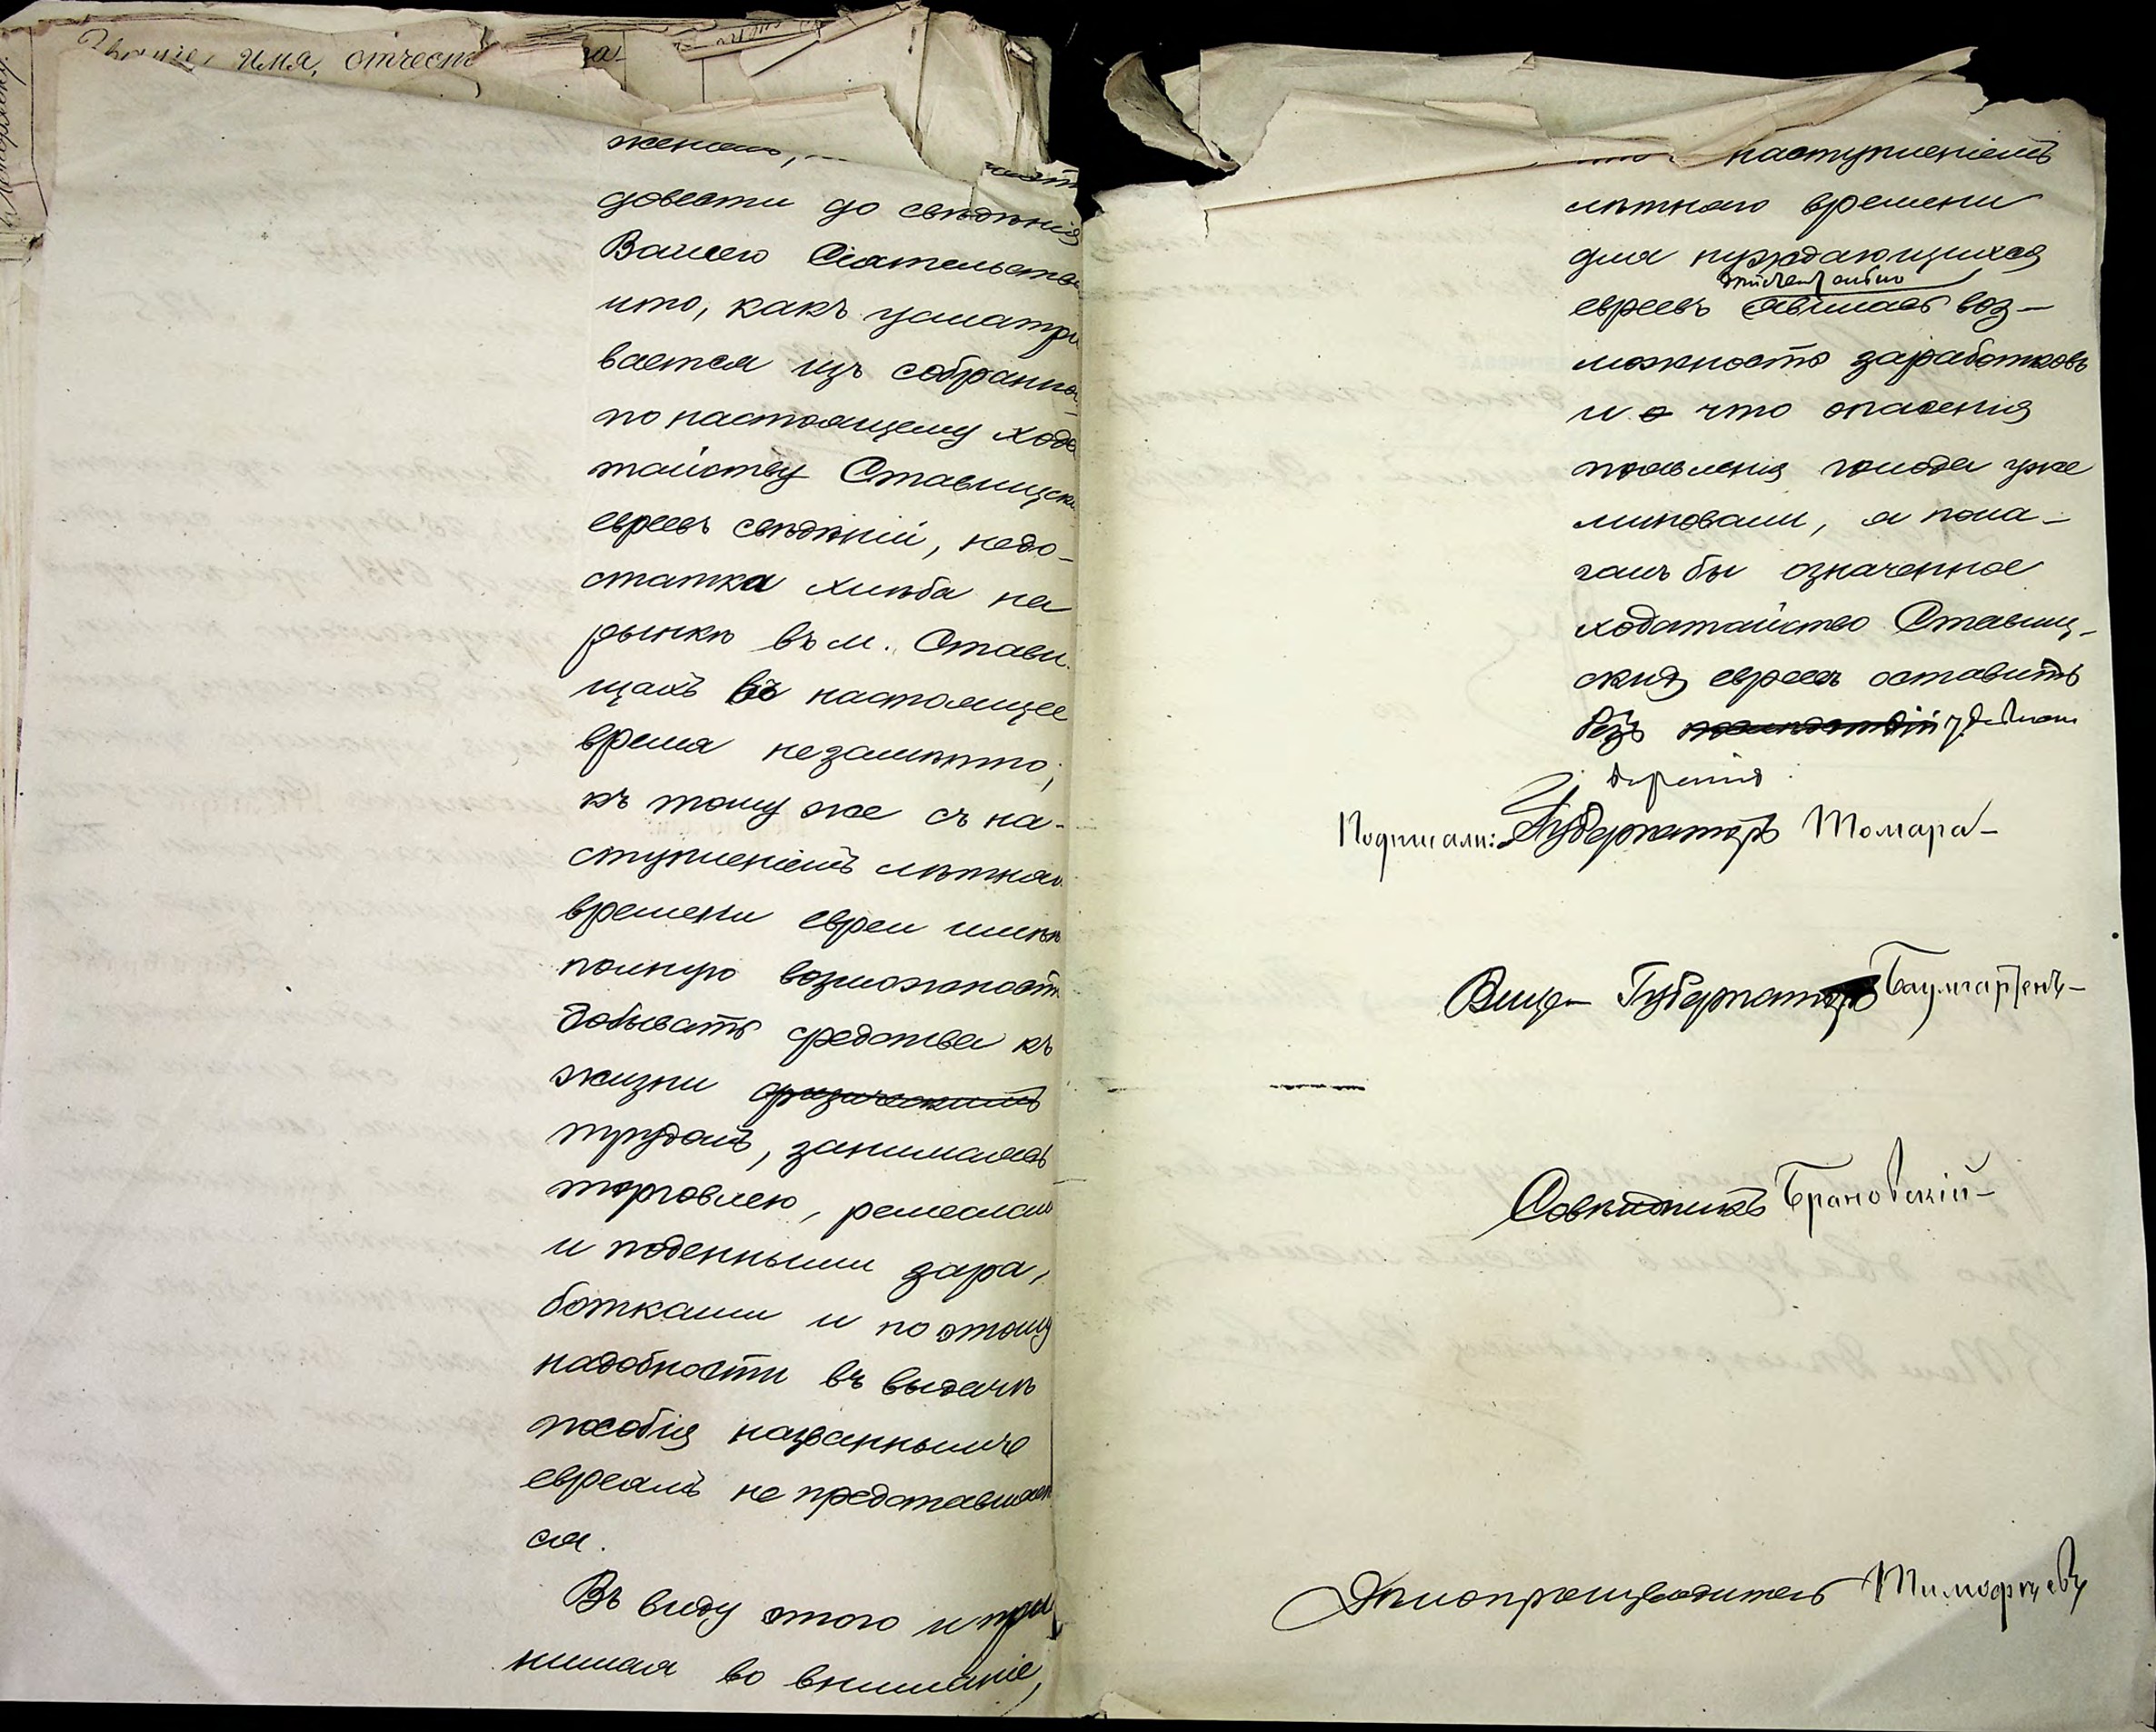 имя, отчест
довести до свѣдѣнія
Вашего Сіятельства
что, какъ усматри
вается изъ собранно
по настоящему хода
тайству Ставищски
евреевъ свѣдѣній, недо-
статка хлѣба на
рынкѣ въ м. Стави
щахъ въ настоящее
время незамѣтно;
къ тому же съ на-
ступленіемъ лѣтняго
времени евреи имѣю
полную возможность
добывать средства къ
жизни физическимъ
трудомъ, занимаясь
торговлею, ремеслами
и поденными зара-
ботками и по этому
надобности въ выдачѣ
пособія названнымъ
евреямъ не представляет
ся.
Въ виду этого и при
нимая во вниманіе,
наступленіемъ
лѣтняго времени
для нуждающихся
дѣйствительно
евреевъ явилась воз-
можность заработковъ
и что опасенія
появленія голода уже
миновали, я пола-
галъ бы означенное
ходатайство Ставищ-
скихъ евреевъ оставить
безъ послѣдствій удовлетво
ренія.
Подписали: Губернаторъ Томара
Вице-Губернаторъ Баумгартенъ
Совѣтникъ Брановскій
Дѣлопроизводитель Тимофѣевъ